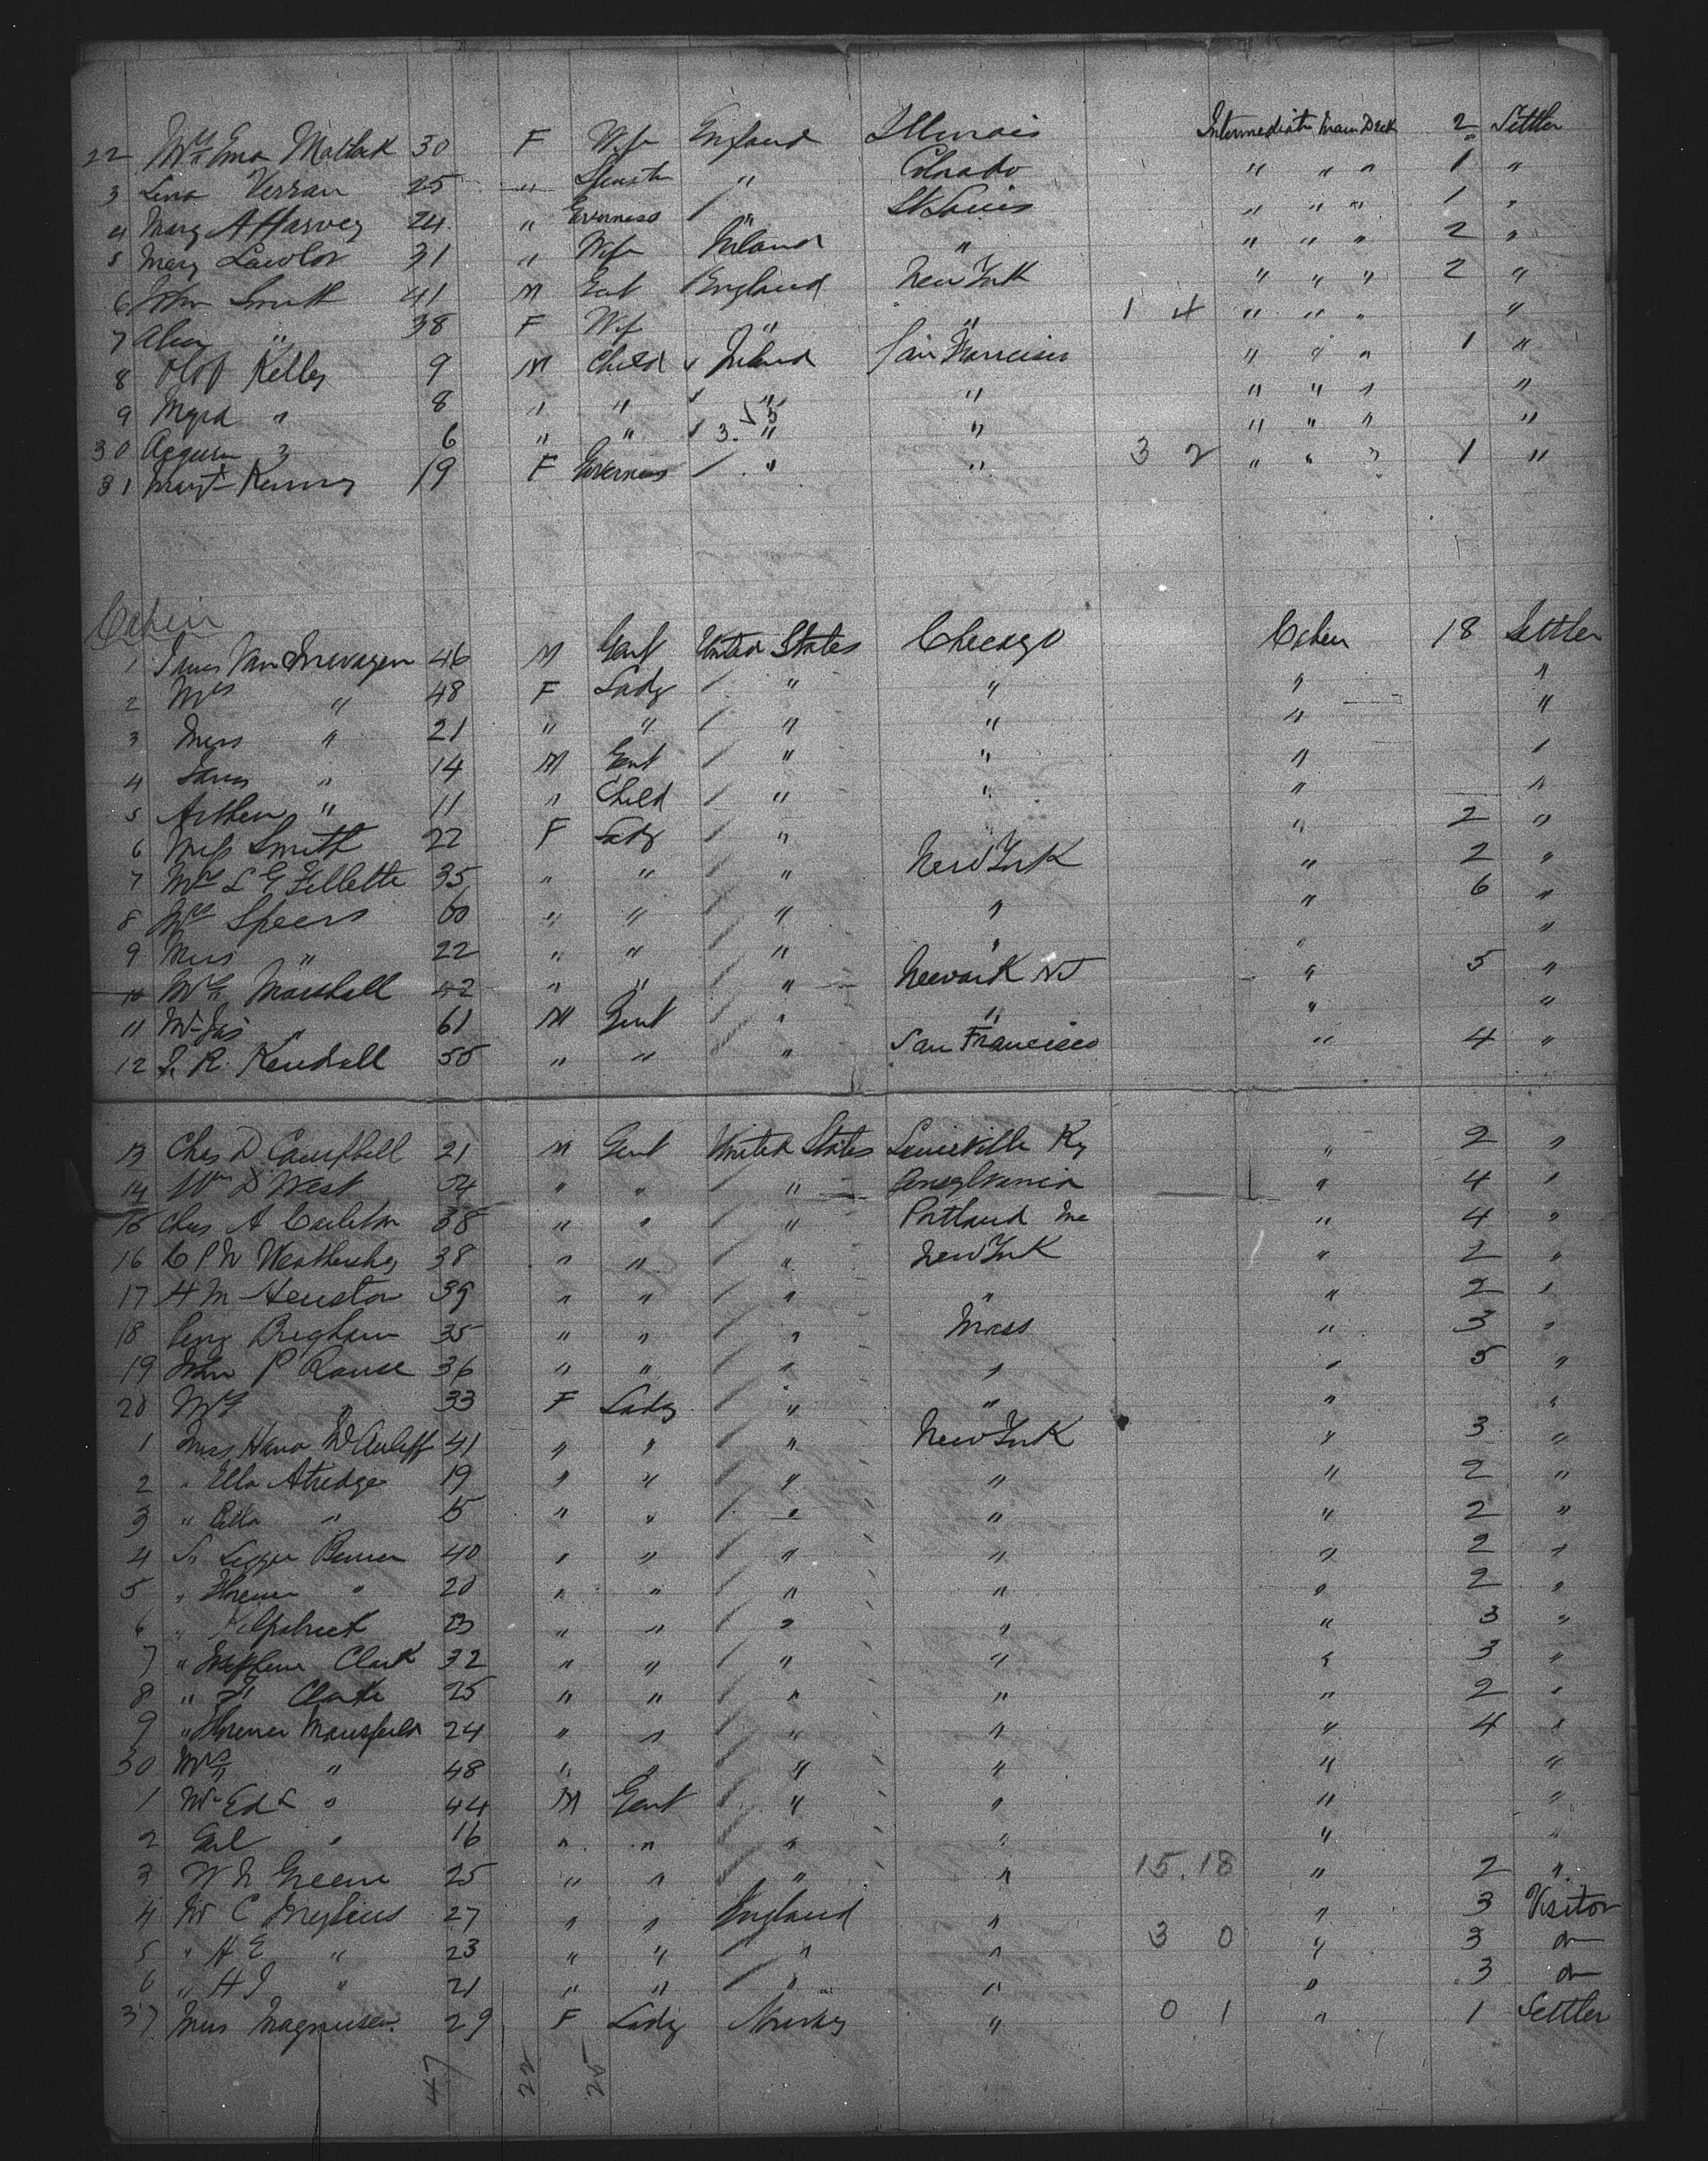 22 Mrs Ema Matlock 30 F Wife England Illinois Intermediate Main Deck 2 Settler
3 Lena Verran 25 " Spinster " Colorado " " " 1 "
4 Mary A Harvey 24 " Governess " St Louis " " " 1 "
5 Mary Lawlor 31 " Wife Ireland " " " " 2 "
6 John Smith 41 M Gent England New York " " " 2 "
7 " 38 F Wife " " 1 4 " " " "
8 Kelley 9 M Child Ireland San Francisco " " " 1 "
9 Myra " 8 " " " " " " " "
30 " 6 " " 3. " " " " " "
31 Margt 19 F Governess " " 3 2 " " " 1 "
Cabin
1 James Van Inwagen 46 M Gent United States Chicago Cabin 18 Settler
2 Mrs " 48 F Lady " " " "
3 Miss " 21 " " " " " "
4 James " 14 M Gent " " " "
5 Arthur " 11 " Child " " " "
6 Miss Smith 22 F Lady " " " 2 "
7 Mrs L G Fillette 35 " " " New York " 2 "
8 Mrs Speers 60 " " " " " 6 "
9 Miss " 22 " " " " " "
10 Mrs Marshall 42 " " " Newark NJ " 5 "
11 Mr Jas " 61 M Gent " " " "
12 J. R. Kendall 55 " " " San Francisco " 4 "
13 Chas D Campbell 21 M Gent United States Louisville Ky " 2 "
14 Wm D West 54 " " " Pensylvania " 4 "
15 Chas A Carleton 38 " " " Portland Me " 4 "
16 C P W Weathersby 38 " " " New York " 2 "
17 H M Heuston 39 " " " " " 2 "
18 Benj Brigham 35 " " " Mass " 3 "
19 John P Rouse 36 " " " " " 5 "
20 Mrs " 33 F Lady " " " "
1 Miss Hana McAuliff 41 " " " New York " 3 "
2 " Ella Atridge 19 " " " " " 2 "
3 " " 15 " " " " " 2 "
4 " 40 " " " " " 2 "
5 " " 20 " " " " " 2 "
6 " Kilpatrick 23 " " " " " 3 "
7 " Josephene Clark 32 " " " " " 3 "
8 " Clarke 25 " " " " " 2 "
9 " Florence Mansfield 24 " " " " " 4 "
30 Mrs " 48 " " " " " "
1 Mr Ed L " 44 M Gent " " " "
2 " 16 " " " " " "
3 W N Greene 25 " " " " 15.18 " 2 "
4 W C Mylius 27 " " England " " 3 Visitor
5 " H E " 23 " " " " 3 0 " 3 do
6 " H J " 21 " " " " " 3 do
37 Miss Magnusen 29 F Lady Norway " 0 1 " 1 Settler
47 22 25